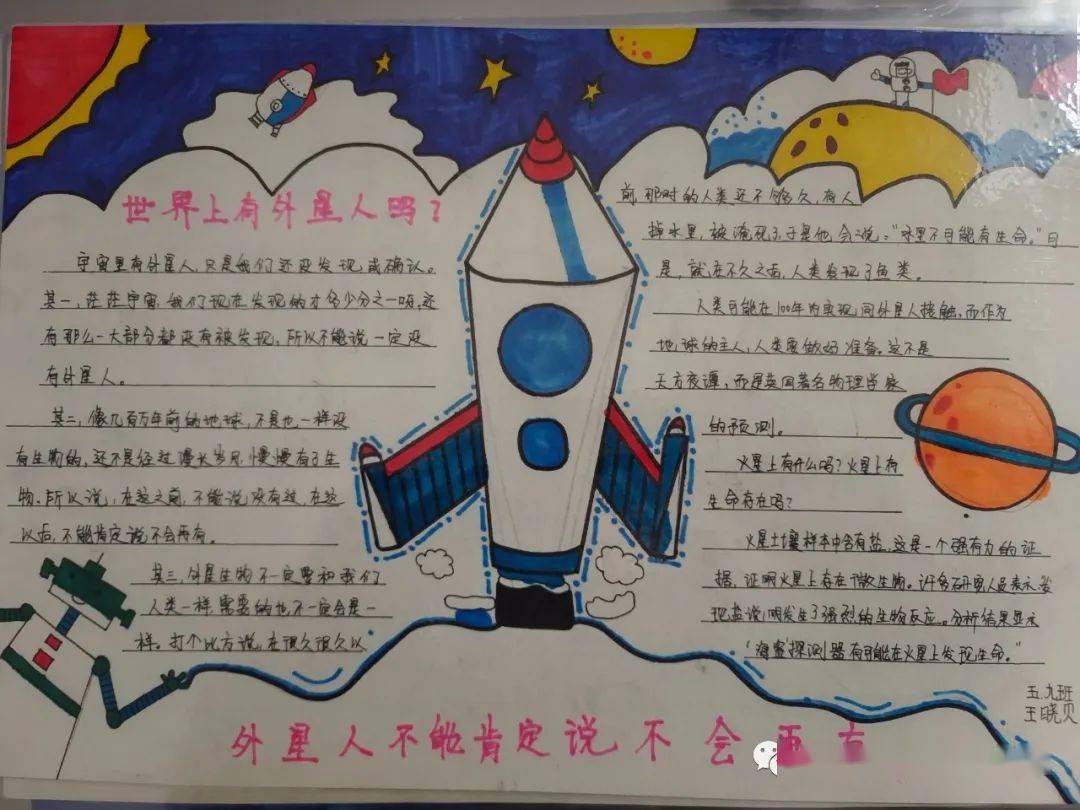 世界上有外星人吗？
宇宙里有外星人，只是我们还没发现或确认。
其一，茫茫宇宙，我们现在发现的才多少分之一呀，还
有那么一大部分都没有被发现，所以不能说一定没
有外星人。
其二，像几百万年前的地球，不是也一样没
有生物的，还不是经过漫长岁月，慢慢有了生
物。所以说，在这之前，不能说没有过，在这
以后，不能肯定说不会再有。
其三，外星生物不一定要和我们
人类一样，需要的也不一定会是一
样。打个比方说，在很久很久以
前，那时的人类还不够久，有人
掉水里，被淹死了，于是他会说："水里不可能有生命。"可
是，就在不久之后，人类发现了鱼类。
人类可能在100年内实现同外星人接触，而作为
地球的主人，人类要做好准备。这不是
天方夜谭，而是英国著名物理学家
的预测。
火星上有什么吗？火星上有
生命存在吗？
火星土壤样本中含有盐，这是一个强有力的证
据，证明火星上存在微生物。许多研究人员表示，发
现盐说明发生了强烈的生物反应。分析结果显示
"海盗"探测器有可能在火星上发现生命。"
五.九班
王晓贝
外星人不能肯定说不会再有